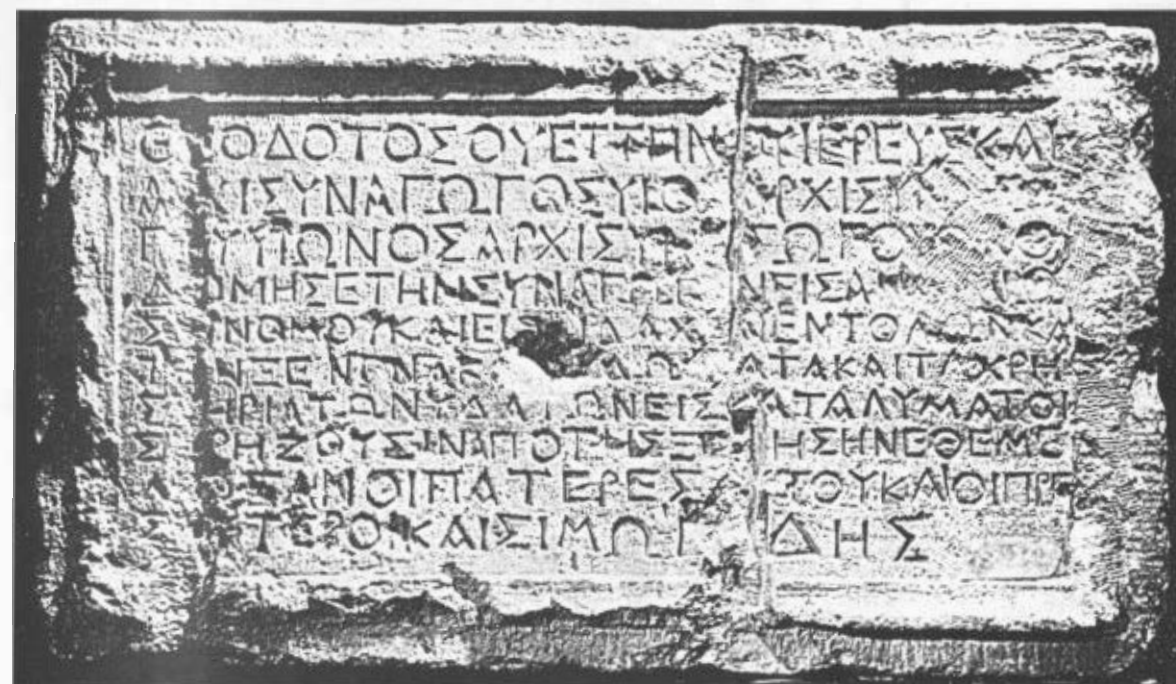 Θ ΟΔΟΤΟΣΟΥΕΤΤΗΝΟΥΙΕΡΕΥΣΚΑΙ
Α ΧΙΣΥΝΑΓΩΓΟΣΥΙΟ ΑΡΧΙΣΥ
Γ ΥΥΙΩΝΟΣΑΡΧΙΣΥΝ ΓΩΓΟΥ Ο
Δ ΟΜΗΣΕΤΗΝΣΥΝΑΓΩΓ ΝΕΙΣΑ Ω
Σ ΝΟΜΟΥΚΑΙΕΙΣ ΙΔΑΧ ΝΕΝΤΟΛΩΝΚΑ
Τ ΝΞΕΝΩΝΑΚΑ ΔΩΜΑΤΑΚΑΙΤΑΧΡΗ
Σ ΗΡΙΑΤΩΝΥΔΑΤΩΝΕΙΣΚΑΤΑΛΥΜΑΤΟΙ
Σ ΡΗΖΟΥΣΙΝΑΠΟΤΗΣΞΕ ΗΣΗΝΕΘΕΜΕ
Λ ΣΑΝΟΙΠΑΤΕΡΕΣ ΤΟΥΚΑΙΟΙΠΡΕ
Σ ΤΕΡΟΙΚΑΙΣΙΜΩΝ ΔΗΣ